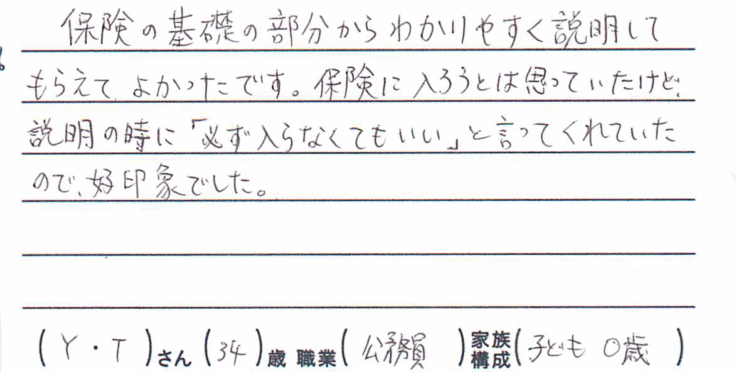 保険の基礎の部分からわかりやすく説明して
もらえて、よかったです。保険に入ろうとは思っていたけど、
説明の時に「必ず入らなくてもいい」と言ってくれていた
ので、好印象でした。
(Y・T)さん(34)歳 職業(公務員)家族構成(子ども 0歳)